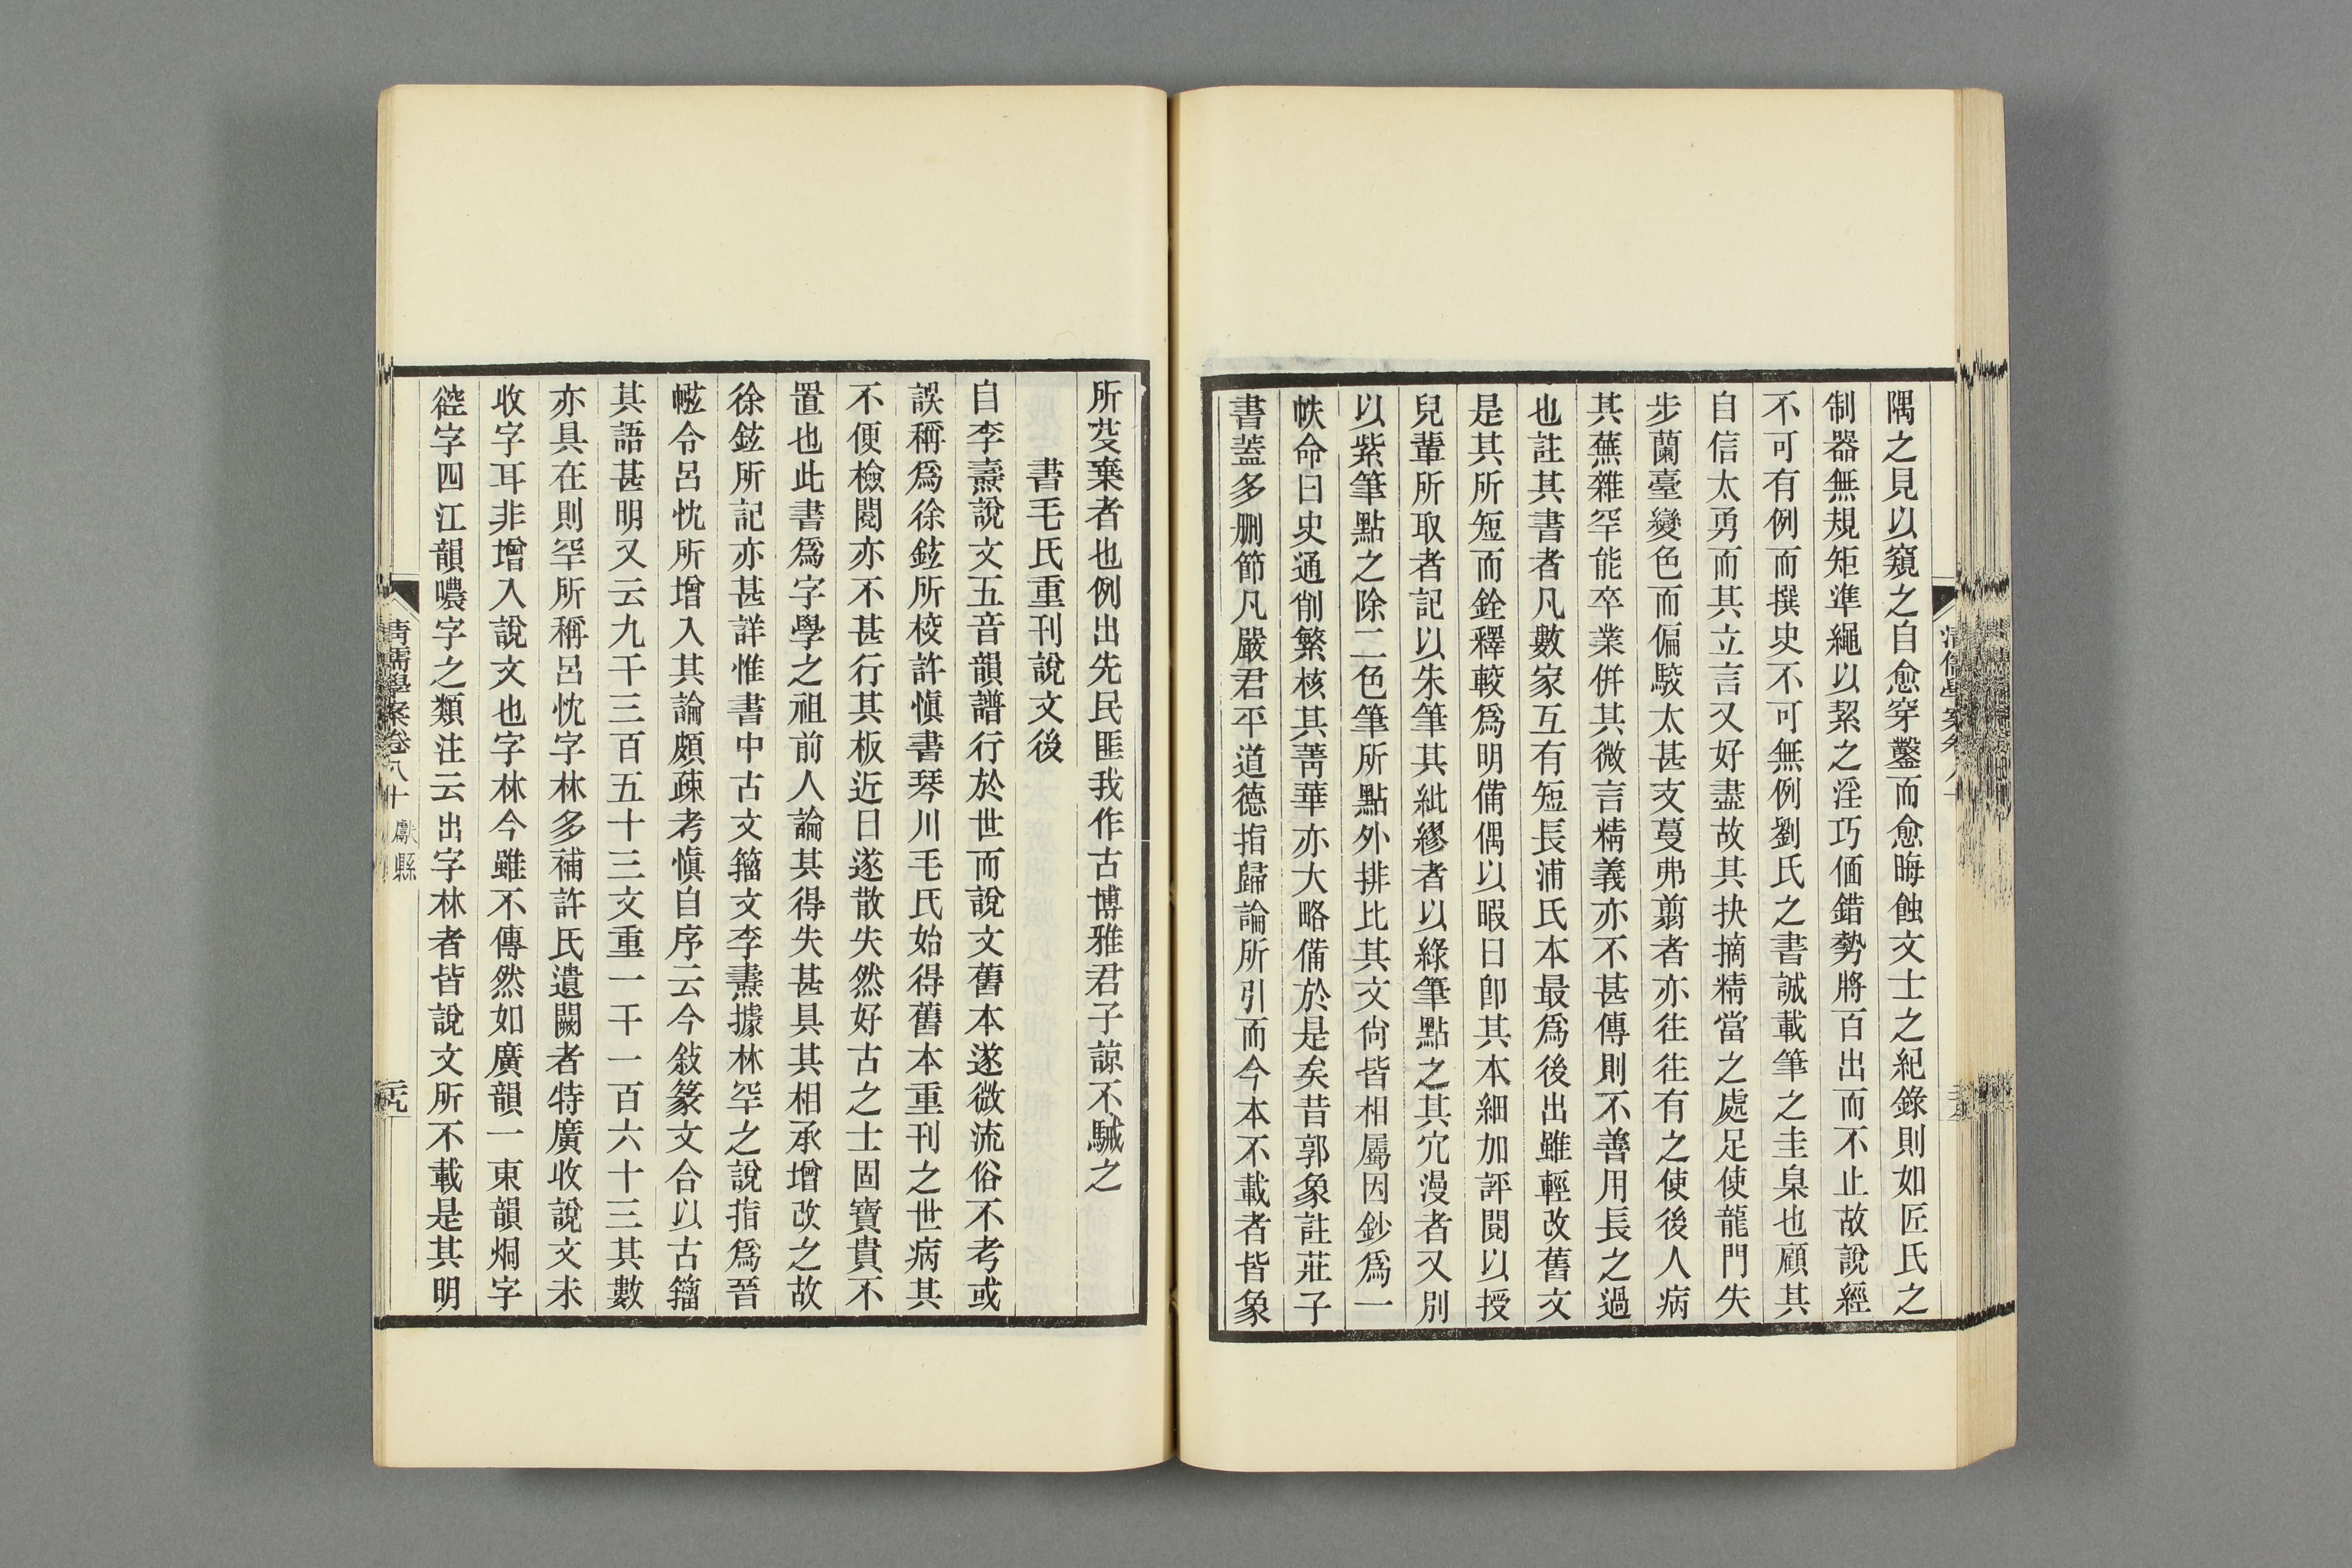 隅之見以窺之自愈穿鑿而愈晦蝕文士之紀錄則如匠氏之
制器無規矩準繩以絜之淫巧偭錯勢將百出而不止故說經
不可有例而撰史不可無例劉氏之書誠載筆之圭臬也顧其
自信太勇而其立言又好盡故其抉摘精當之處足使龍門失
步蘭臺變色而偏駮太甚支蔓弗翦者亦往往有之使後人病
其蕪雜罕能卒業併其微言精義亦不甚傳則不善用長之過
也註其書者凡數家互有短長浦氏本最爲後出雖輕改舊文
是其所短而銓釋較爲明備偶以暇日卽其本細加評閱以授
兒輩所取者記以朱筆其紕繆者以綠筆點之其冗漫者又別
以紫筆點之除二色筆所點外排比其文尙皆相屬因鈔爲一
帙命曰史通削繁核其菁華亦大略備於是矣昔郭象註莊子
書蓋多删節凡嚴君平道德指歸論所引而今本不載者皆象
所芟棄者也例出先民匪我作古博雅君子諒不駴之
書毛氏重刊說文後
自李燾說文五音韻譜行於世而說文舊本遂微流俗不考或
誤稱爲徐鉉所校許愼書琴川毛氏始得舊本重刊之世病其
不便檢閱亦不甚行其板近日遂散失然好古之士固寶貴不
置也此書爲字學之祖前人論其得失甚具其相承增改之故
徐鉉所記亦甚詳惟書中古文籀文李燾據林罕之說指爲晉
㡒令呂忱所增入其論頗疎考愼自序云今敍篆文合以古籀
其語甚明又云九千三百五十三文重一千一百六十三其數
亦具在則罕所稱呂忱字林多補許氏遺闕者特廣收說文未
收字耳非增入說文也字林今雖不傳然如廣韻一東韻烔字
谾字四江韻噥字之類注云出字林者皆說文所不載是其明
清儒學案卷八十
獻縣
二十九